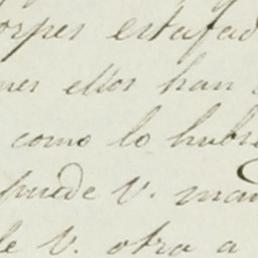 orpes estafad
nes ellos han
como lo hubi
puede V. man
le V. otra a